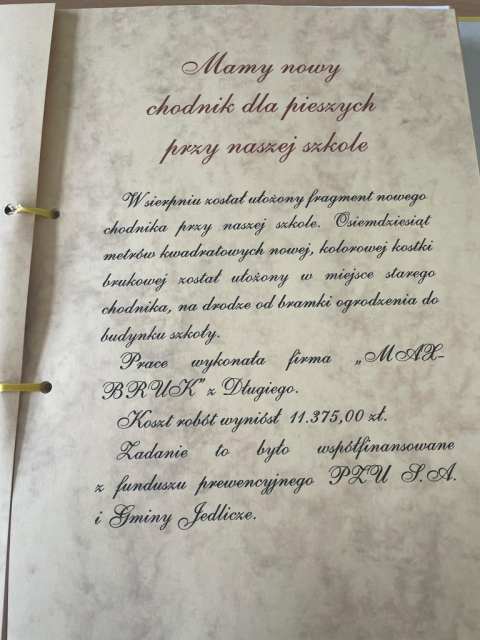 Mamy nowy
chodnik dla pieszych
przy naszej szkole
W sierpniu został ułożony fragment nowego
chodnika przy naszej szkole. Osiemdziesiąt
metrów kwadratowych nowej, kolorowej kostki
brukowej został ułożony w miejsce starego
chodnika, na drodze od bramki ogrodzenia do
budynku szkoły.
Prace wykonała firma „MAX-
BRUK” z Długiego.
Koszt robót wyniósł 11.375,00 zł.
Zadanie to było współfinansowane
z funduszu prewencyjnego PZU S.A.
i Gminy Jedlicze.